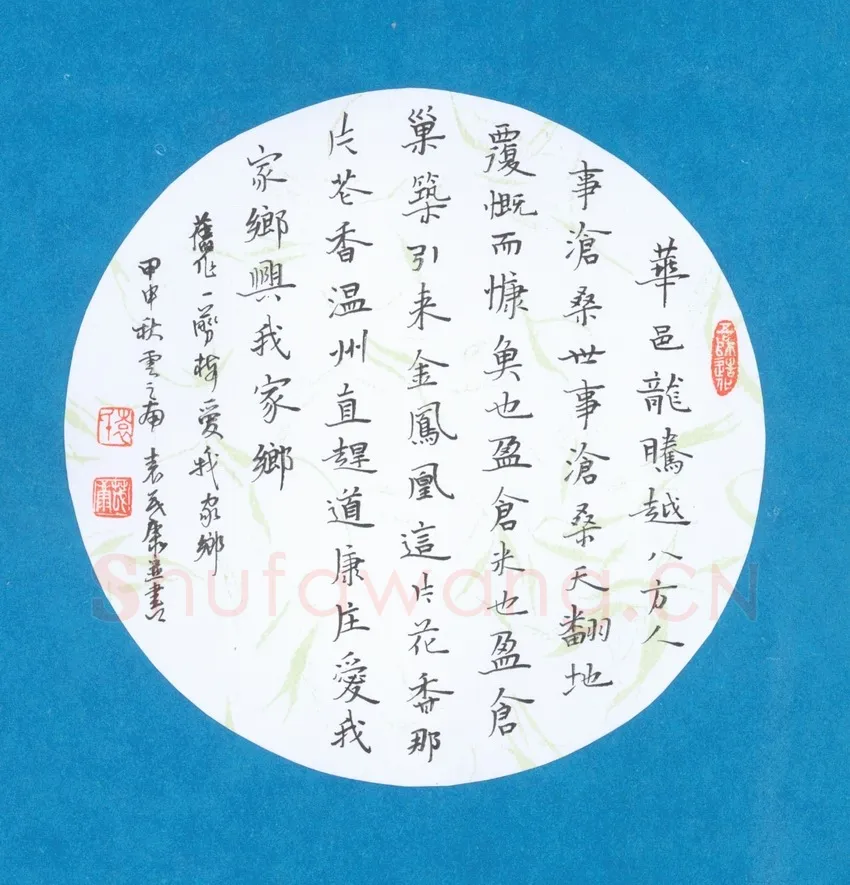 華邑龍騰越八方人
事滄桑世事滄桑天翻地
覆慨而慷魚也盈倉米也盈倉
巢築引来金鳳凰這片花香那
片花香温州直趕道康庄愛我
家鄉興我家鄉
舊作一剪梅愛我家鄉
甲申秋雲之南 袁茂康並書
Shufawang.CN